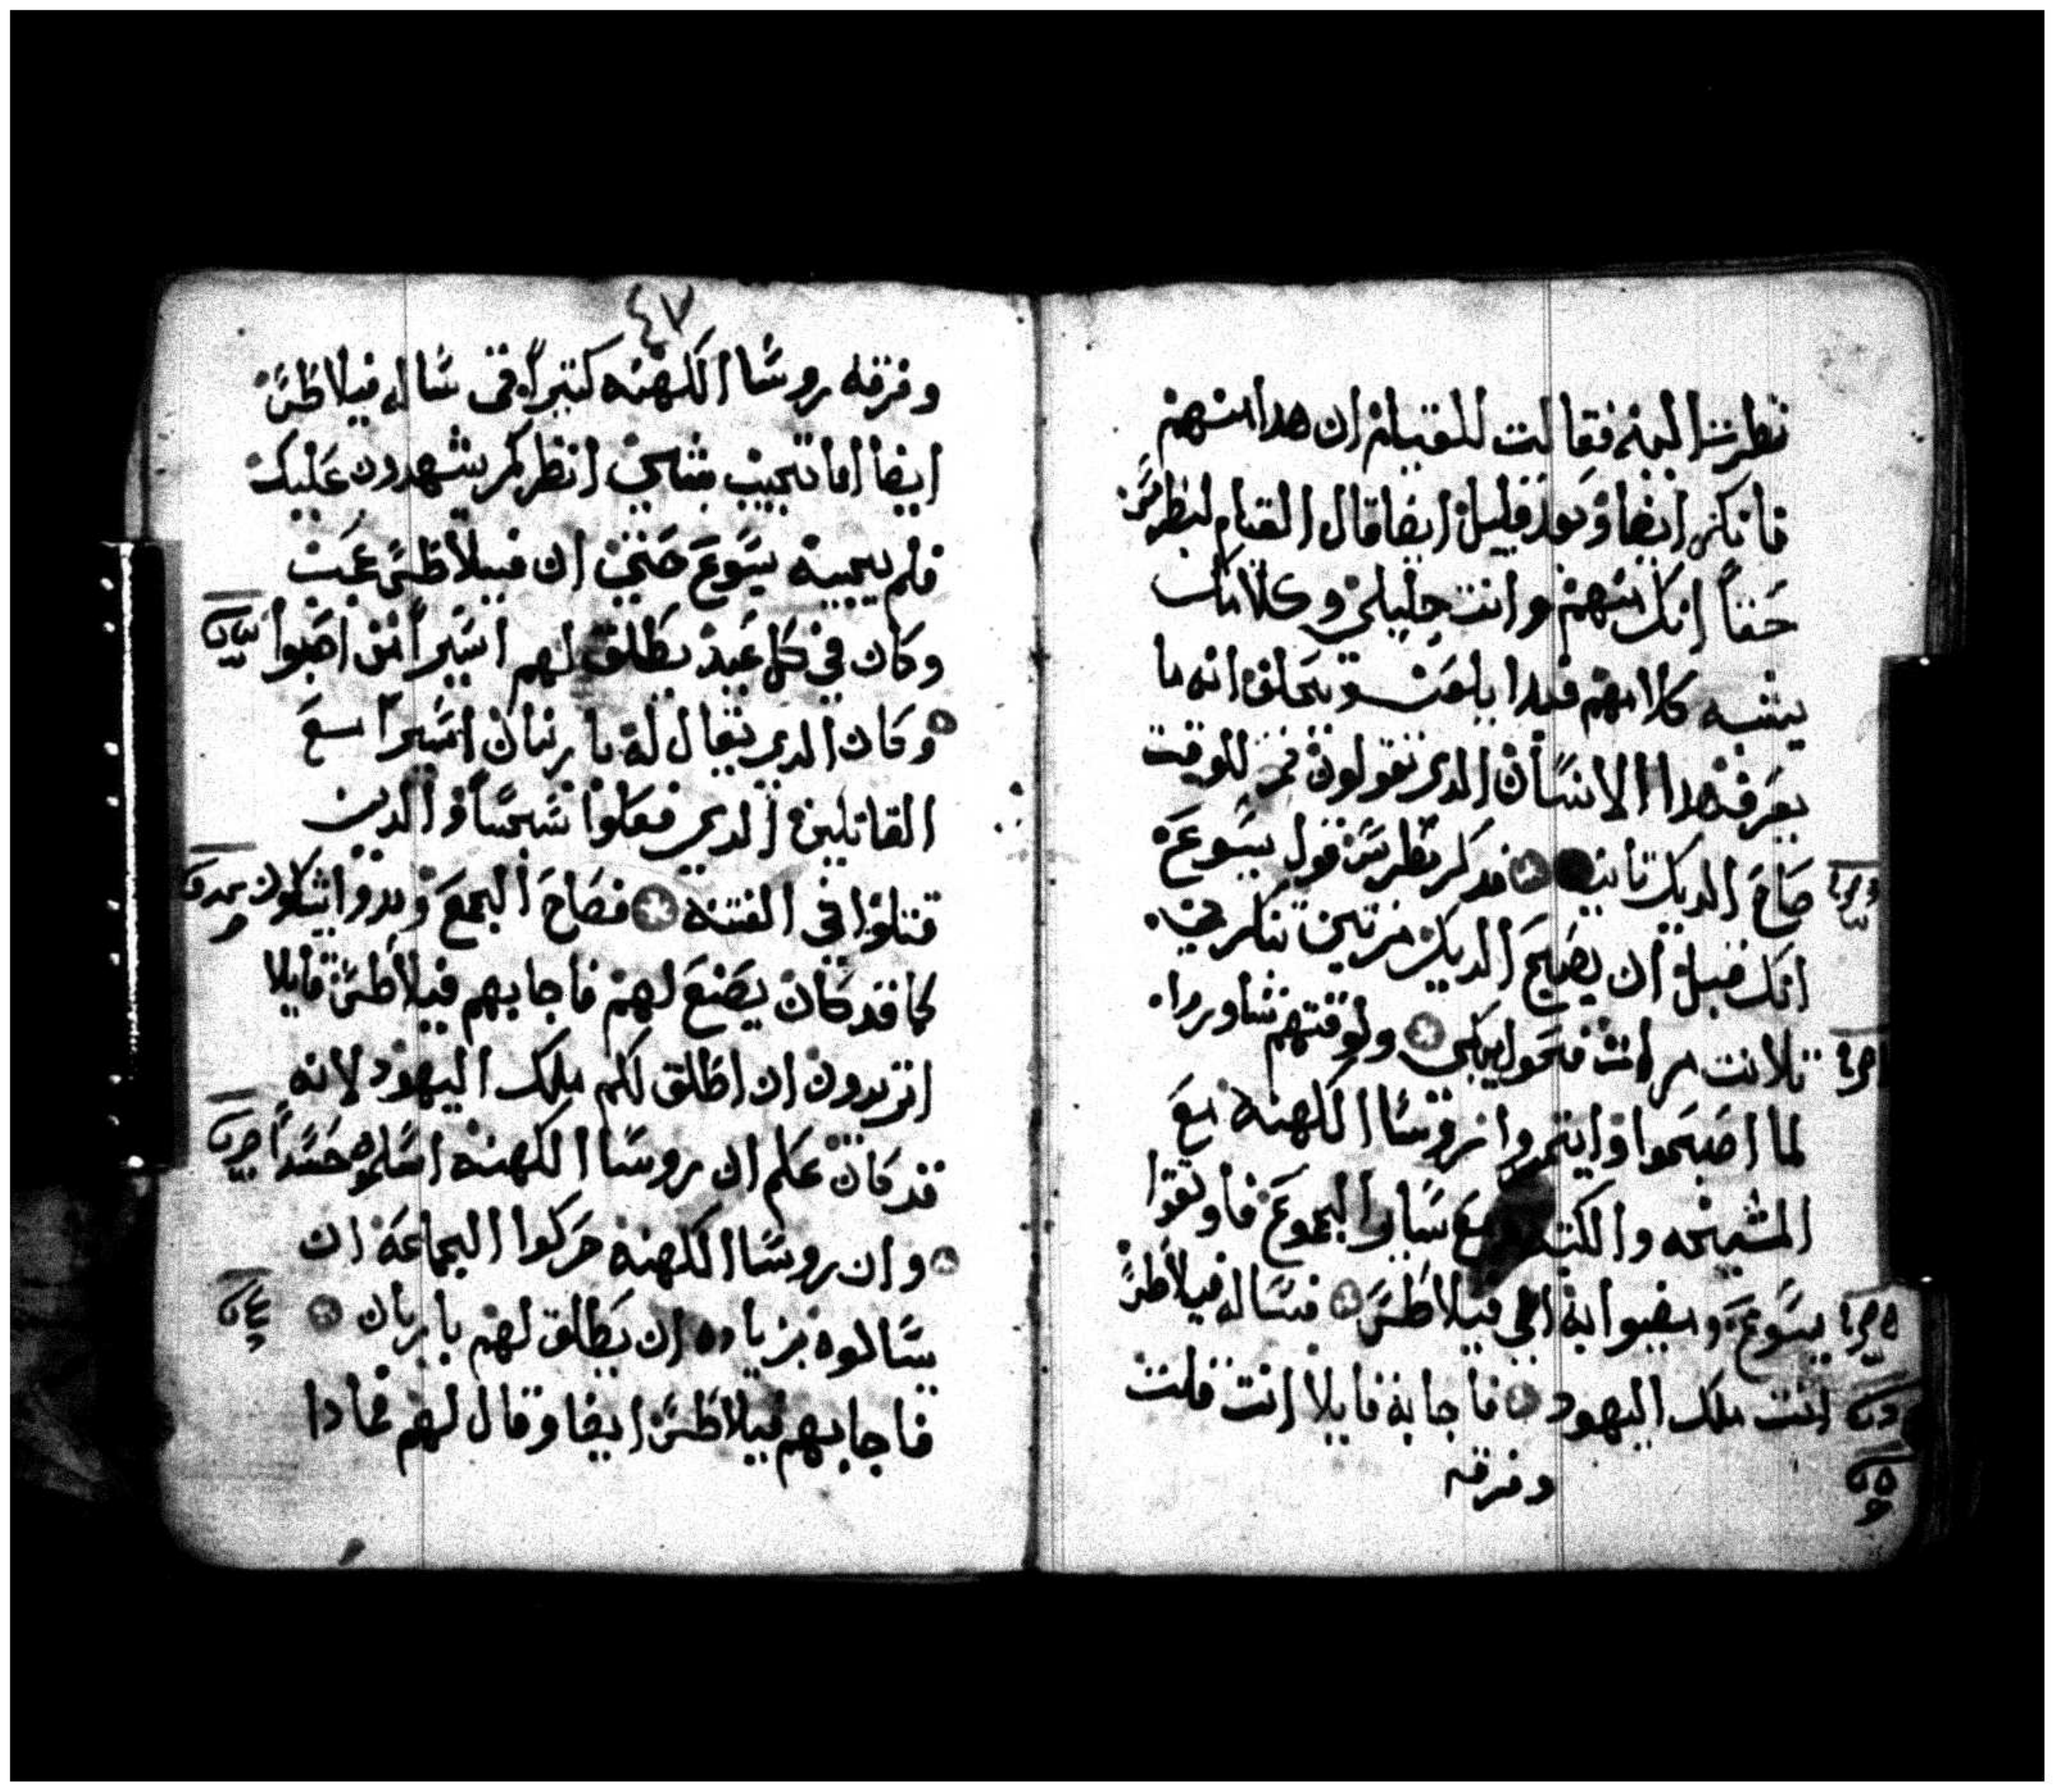 بطرس البمة فقالت للقيام ان هدا منهم
فانكر ايضا وبعد قليل ايضا قال القيام لبطرس
حقاً انك منهم وانت جليلي وكلامك
يشبه كلامهم فبدا يلعن ويحلف انه ما
يعرف هدا الانسان الدي تقولون فمن للوقت
صاح الديك تانيه فدكر بطرس قول يسوع
انك قبل ان يصيح الديك مرتين تنكرني
تلاتت مرات فتحول يبكي ولوقتهم تشاوروا
لما اصبحوا وايتمروا روسا الكهنه مع
المشيخه والكتبه ومع ساير الجموع فاوتقوا
يسوع ومضوا به الي فيلاطس فساله فيلاطس
انت ملك اليهود فاجابه قايلا انت قلت
وقرفه
٤٧
وقرفه روسا الكهنه كتيراً في ساله فيلاطس
ايضا اما تجيب بشي انظر كم يشهدون عليك
فلم يجيبه يسوع حتي ان فيلاطس عجب
وكان في كل عيد يطلق لهم اسيراً من احبوا
وكان الدي يقال له باربان اسيراً مع
القاتلين الدي فعلوا سجساً والدين
قتلوا في الفتنه فصاح الجمع وبدوا يسلون
كما قد كان يصنع لهم فاجابهم فيلاطس قايلا
اتريدون ان اطلق لكم ملك اليهود لانه
قد كان علم ان روسا الكهنه اسلموه حسداً
وان روسا الكهنه حركوا الجماعه ان
يسالوه بزياده ان يطلق لهم باربان
فاجابهم فيلاطس ايضا وقال لهم فمادا